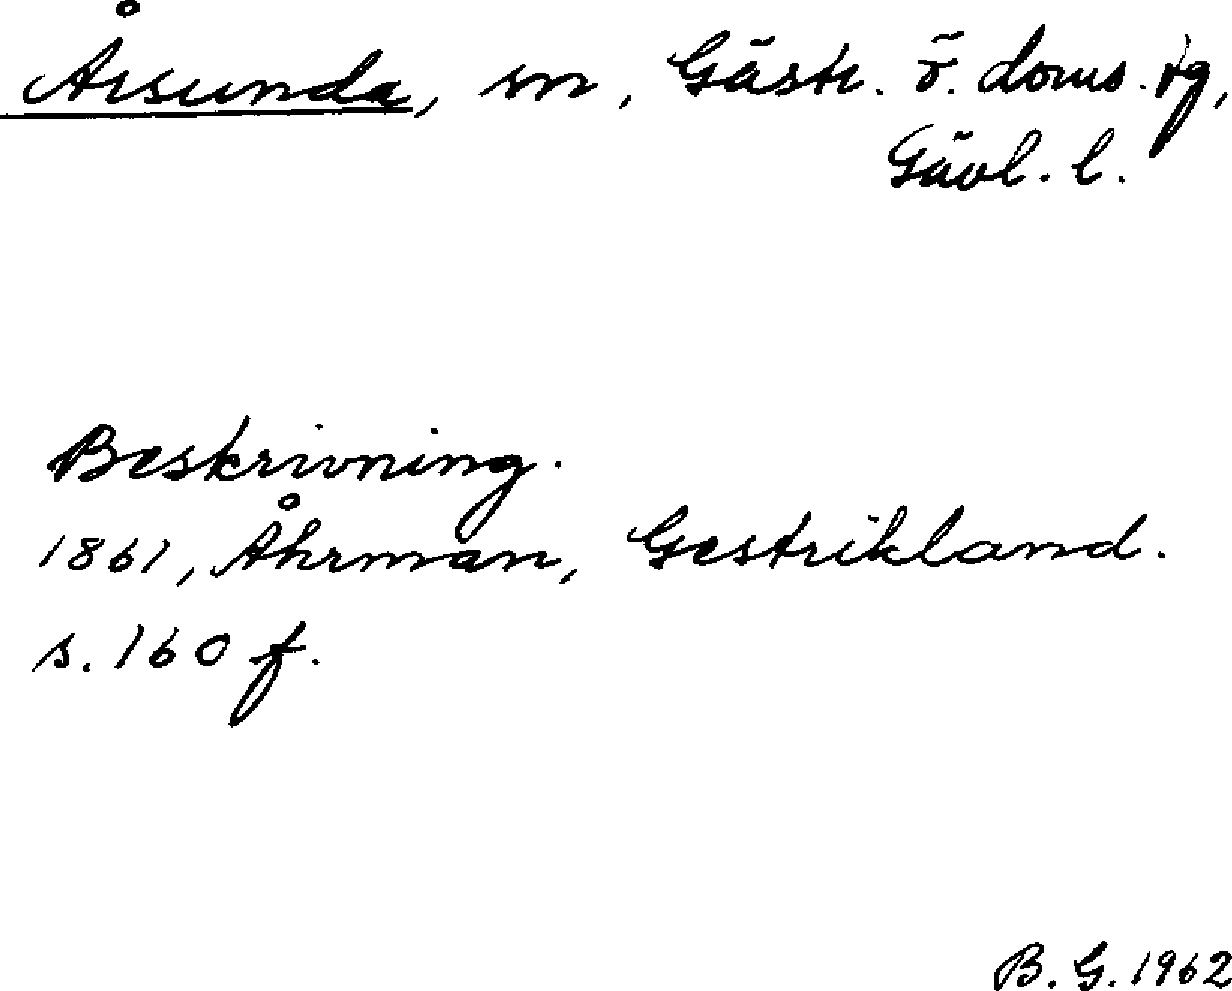 Årsunda, sn, Gästr. ö. doms. tg,
Gävl. l.
Beskrivning.
1861, Åhrman, Gestrikland.
s. 160 f.
B. G. 1962